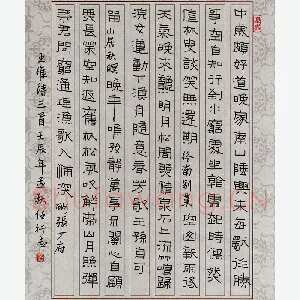 中歲頗好道晚家南山陲興來每獨往勝
事空自知行到水窮處坐看雲起時偶然
值林叟談笑無還期 終南別業 空山新雨後
天氣晚來秋明月松間照清泉石上流竹喧歸
浣女蓮動下漁舟隨意春芳歇王孫自可
留 山居秋暝 晚年唯好靜萬事不關心自顧
無長策空知返舊林松風吹解帶山月照彈
琴君問窮通理漁歌入浦深 酬張少府
王維詩三首壬辰年孟秋